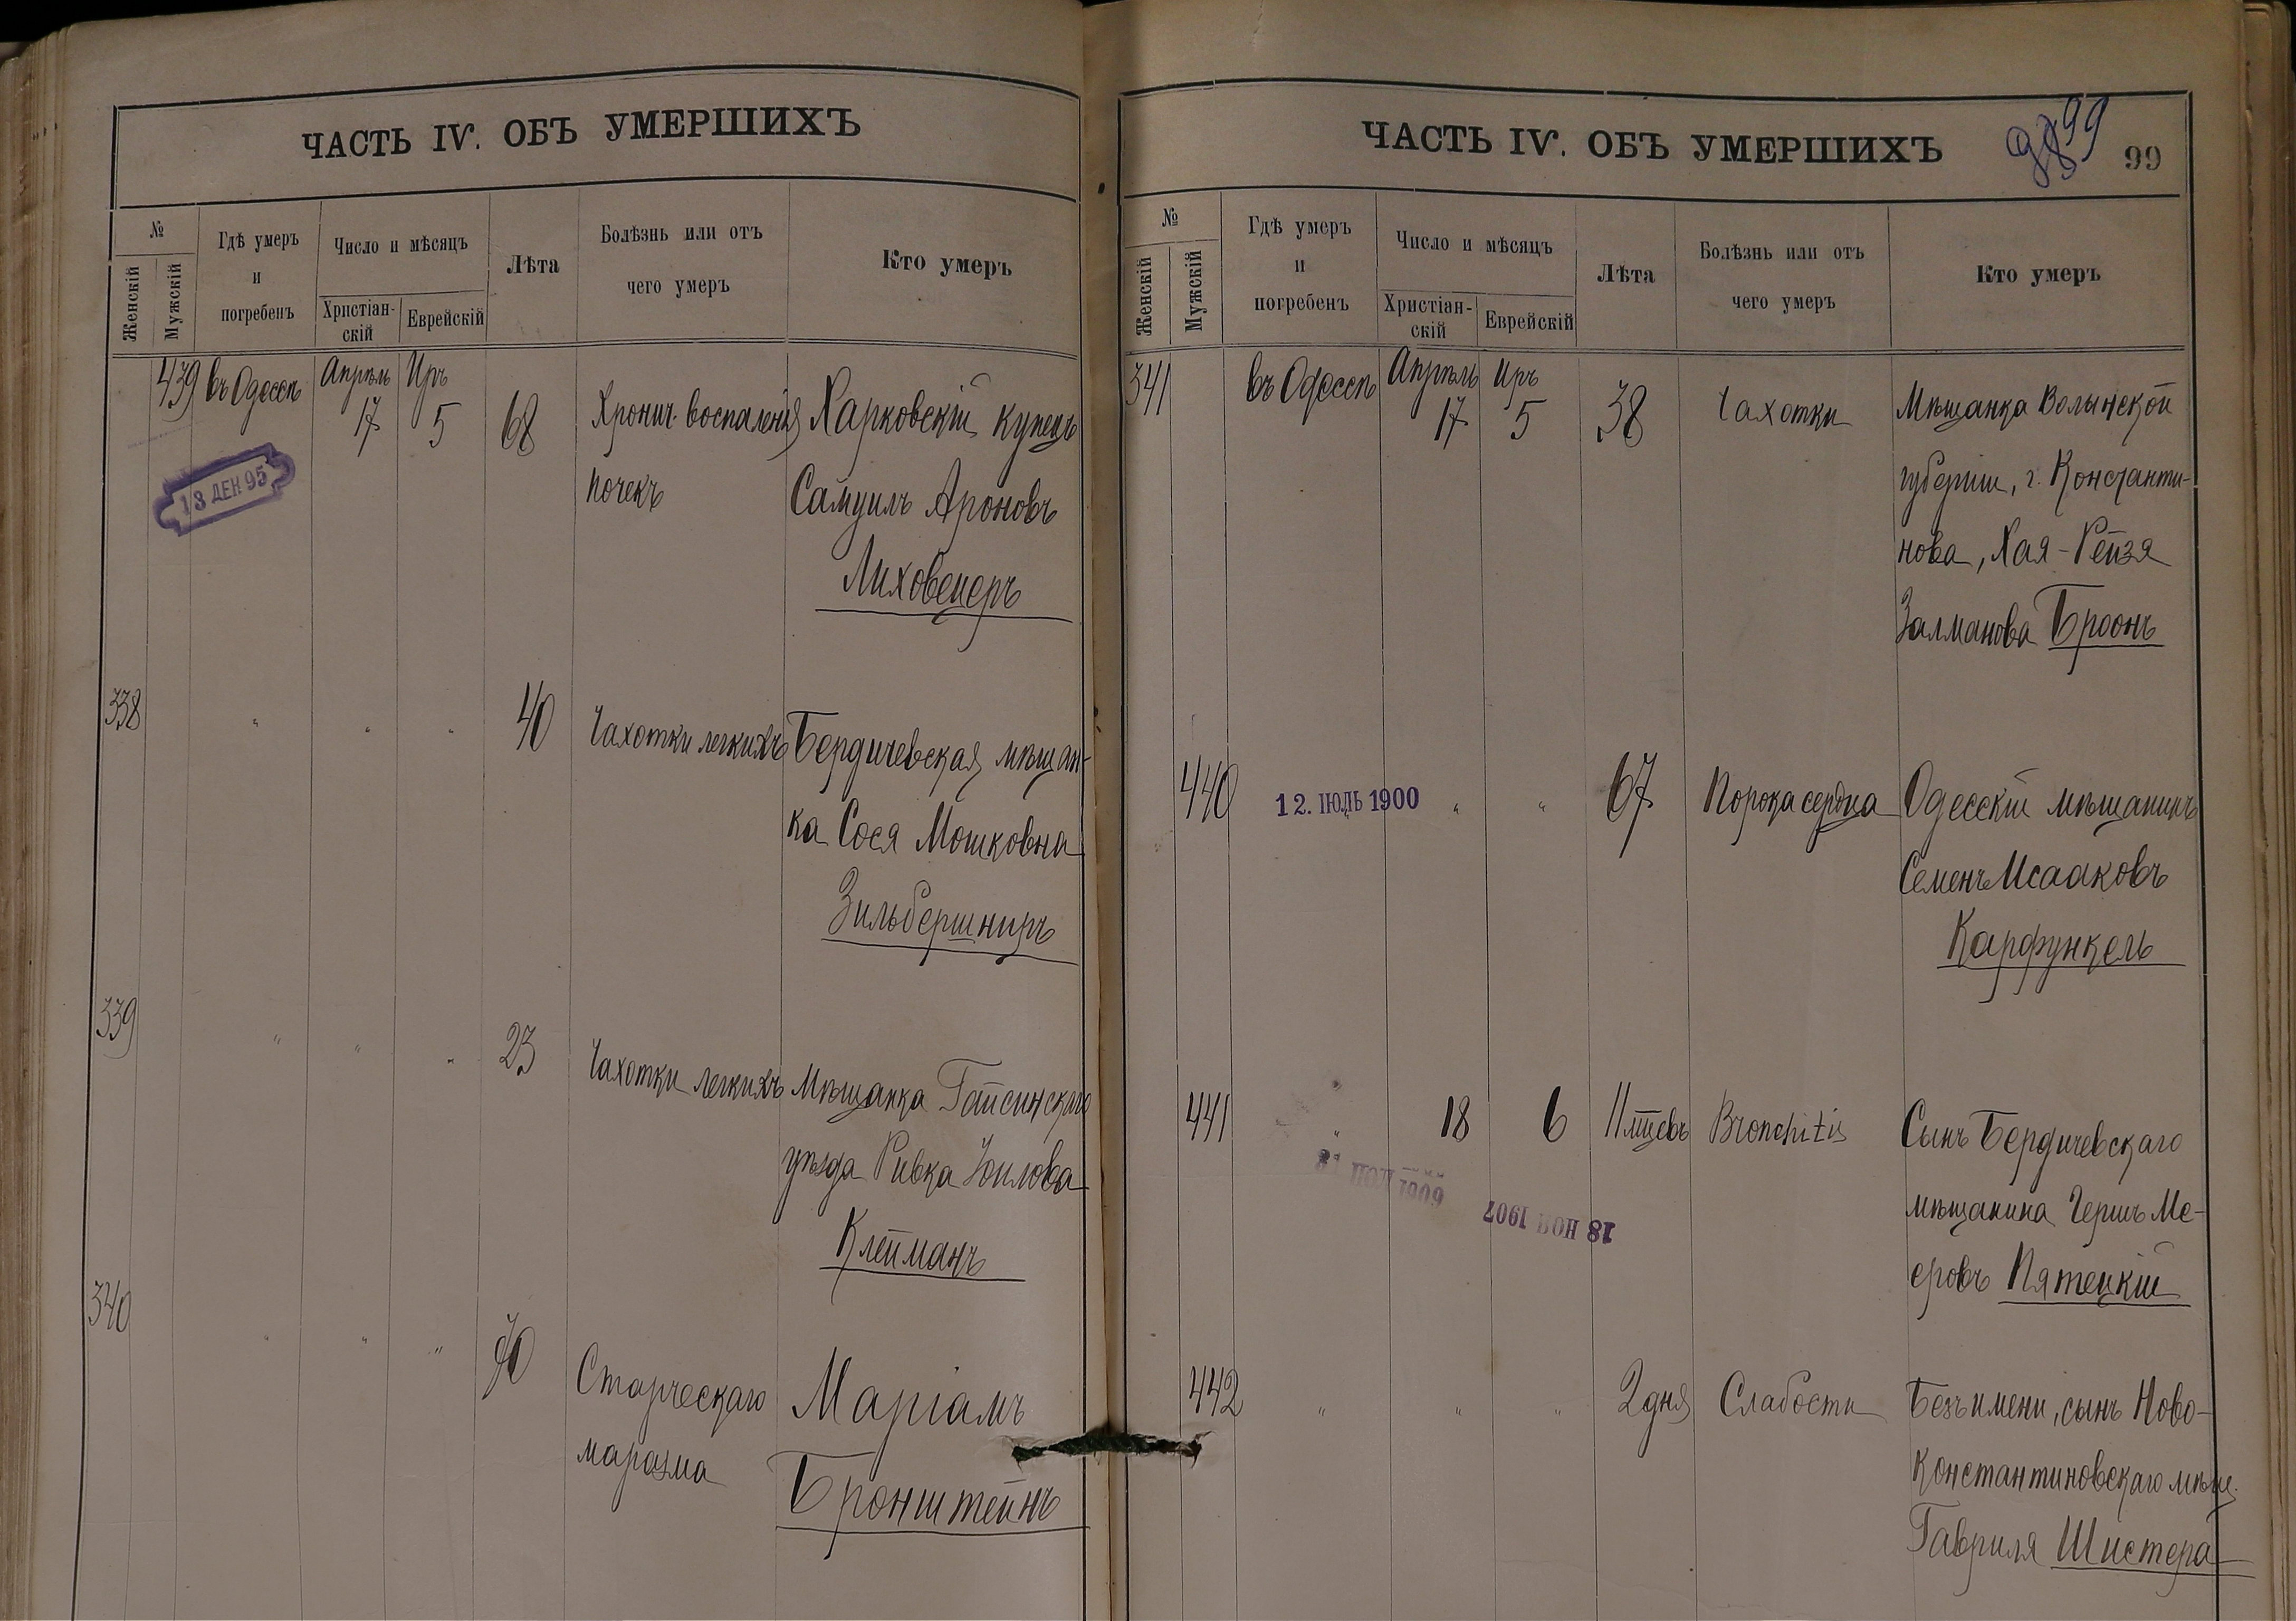 ЧАСТЬ IV. ОБЪ УМЕРШИХЪ
№
Женскій
Мужскій
Гдѣ умеръ
и
погребенъ
Число и мѣсяцъ
Христіан-
скій
Еврейскій
Лѣта
Болѣзнь или отъ
чего умеръ
Кто умеръ
439 въ Одессѣ Апрѣль 17 Иръ 5 68 Хронич. воспаленія Харковскій купецъ
почекъ Самуилъ Ароновъ
Лиховецеръ
13 ДЕК 95
338 " " " 40 Чахотки легкихъ Бердичевская мѣщан-
ка Сося Мошковна
Зильбершниръ
339 " " " 23 Чахотки легкихъ Мѣщанка Гайсинскаго
уѣзда Ривка Юилова
Клейманъ
340 " " " 90 Старческаго Маріамъ
маразма Бронштейнъ
ЧАСТЬ IV. ОБЪ УМЕРШИХЪ
99
99
№
Женскій
Мужскій
Гдѣ умеръ
и
погребенъ
Число и мѣсяцъ
Христіан-
скій
Еврейскій
Лѣта
Болѣзнь или отъ
чего умеръ
Кто умеръ
341 въ Одессѣ Апрѣль 17 Иръ 5 38 Чахотки Мѣщанка Волынской
губерніи, г. Константи-
нова, Хая-Рейзя
Залманова Броонъ
440 12. ІЮЛЬ 1900 " " 67 Порока сердца Одесскій мѣщанинъ
Семенъ Исааковъ
Карфункель
441 " 18 6 11 мѣцевъ Bronchitis Сынъ Бердичевскаго
мѣщанина Гершъ Ме-
еровъ Пятецкій
1909
18 НОЯ 1907
442 " " " 2 дня Слабости Безъ имени, сынъ Ново-
Константиновскаго мѣщ.
Гавриля Шистера